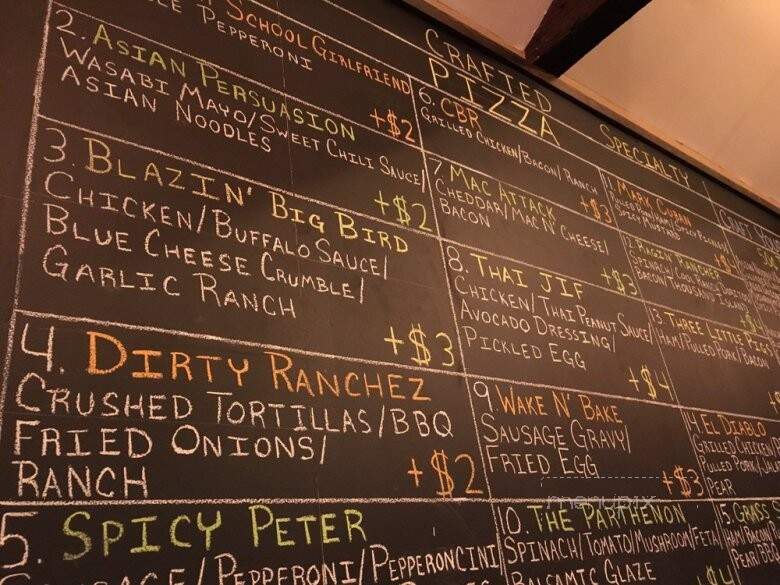 School Girlfriend
Pepperoni
2. Asian Persuasion
Wasabi Mayo/Sweet Chili Sauce/
Asian Noodles
+$2
3. Blazin' Big Bird
+$2
Chicken/Buffalo Sauce/
Blue Cheese Crumble/
Garlic Ranch
+$3
4. Dirty Ranchez
Crushed Tortillas/BBQ
Fried Onions/
Ranch
+$2
5. Spicy Peter
Pepperoni/Pepperoncini
Crafted
Pizza
6. CBR
Grilled Chicken/Bacon/Ranch
+$3
7 Mac Attack
Cheddar/Mac N' Cheese/
Bacon
+$3
8. Thai Jif
Chicken/Thai Peanut Sauce/
Avocado Dressing/
Pickled Egg
+$4
9. Wake N' Bake
Sausage Gravy/
Fried Egg
+$3
menupix
10. The Parthenon
Spinach/Tomato/Mushroom/Feta/
Balsamic Glaze
Specialty
1. Mark Cuban
Spicy Mustard
2. Ragin' Ranchez
3. Three Little Pigs
Ham/Pulled Pork/Bacon
4. El Diablo
Grilled Chicken
Pulled Pork/
Pear
5. Grass
Ham/Bacon
Pear/BB